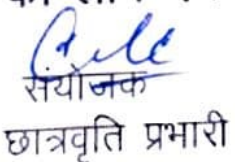 संयोजक
छात्रवृति प्रभारी